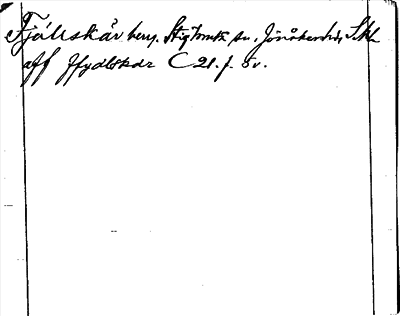 Fjällskär herrg. Stigtomta sn. Jönåkers hd. Srml.
aff ffydlskær C 21. f. 8 v.